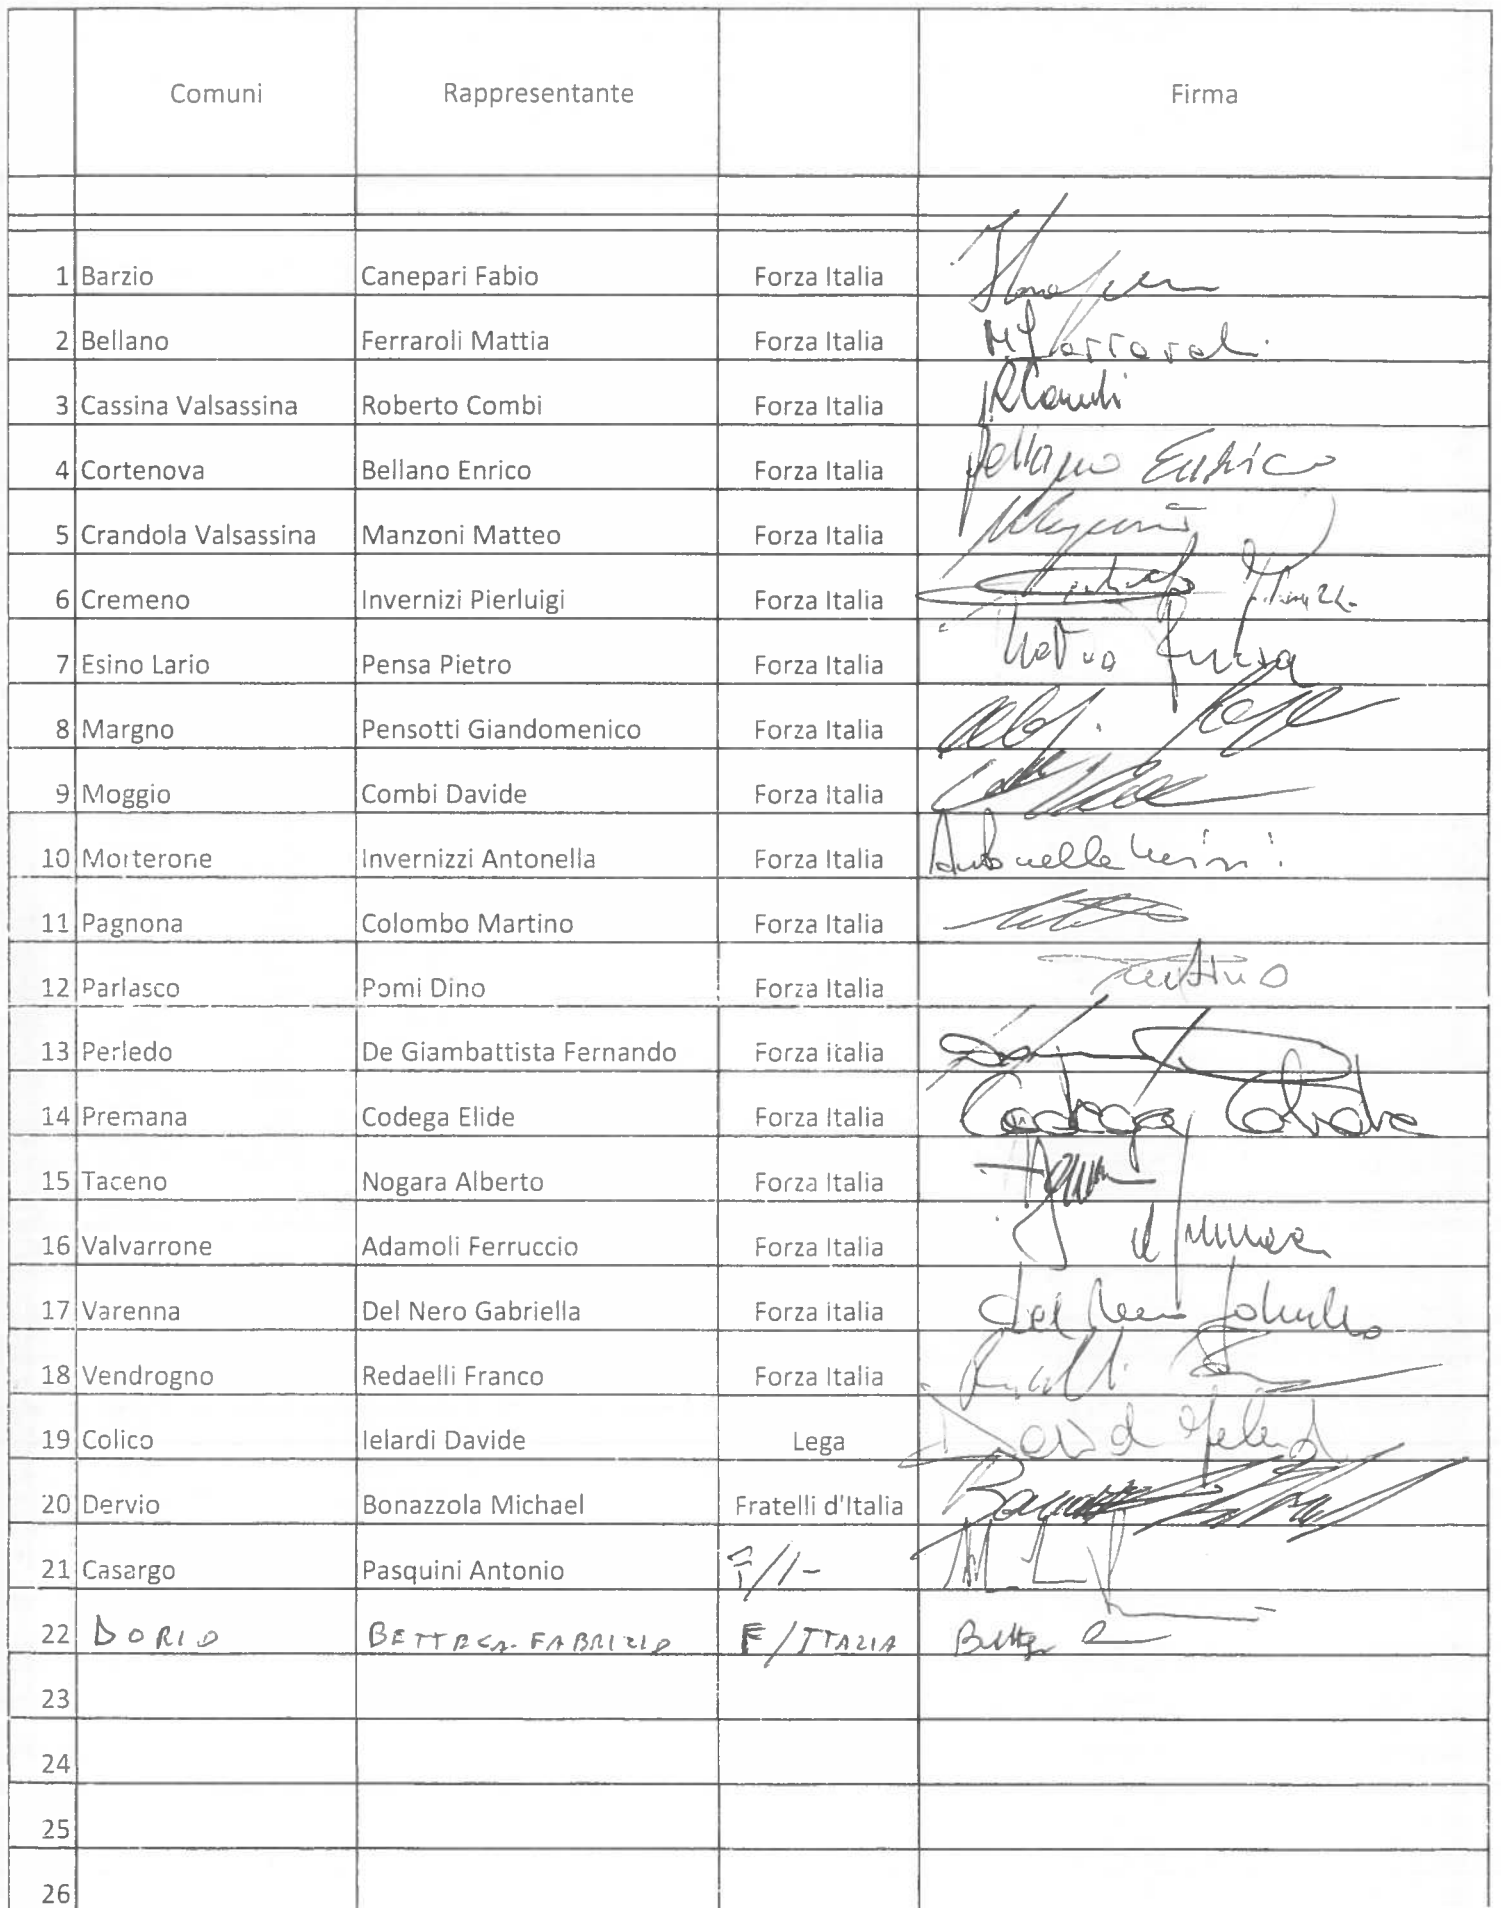 Comuni Rappresentante Firma
1 Barzio Canepari Fabio Forza Italia
2 Bellano Ferraroli Mattia Forza Italia
3 Cassina Valsassina Roberto Combi Forza Italia RCombi
4 Cortenova Bellano Enrico Forza Italia Bellano Enrico
5 Crandola Valsassina Manzoni Matteo Forza Italia
6 Cremeno Invernizi Pierluigi Forza Italia
7 Esino Lario Pensa Pietro Forza Italia
8 Margno Pensotti Giandomenico Forza Italia
9 Moggio Combi Davide Forza Italia
10 Morterone Invernizzi Antonella Forza Italia Antonella
11 Pagnona Colombo Martino Forza Italia
12 Parlasco Pomi Dino Forza Italia
13 Perledo De Giambattista Fernando Forza Italia
14 Premana Codega Elide Forza Italia Codega
15 Taceno Nogara Alberto Forza Italia
16 Valvarrone Adamoli Ferruccio Forza Italia
17 Varenna Del Nero Gabriella Forza Italia Del Nero
18 Vendrogno Redaelli Franco Forza Italia
19 Colico Ielardi Davide Lega
20 Dervio Bonazzola Michael Fratelli d'Italia
21 Casargo Pasquini Antonio F/I-
22 DORIO BETTEGA FABRIZIO F/ITALIA
23
24
25
26